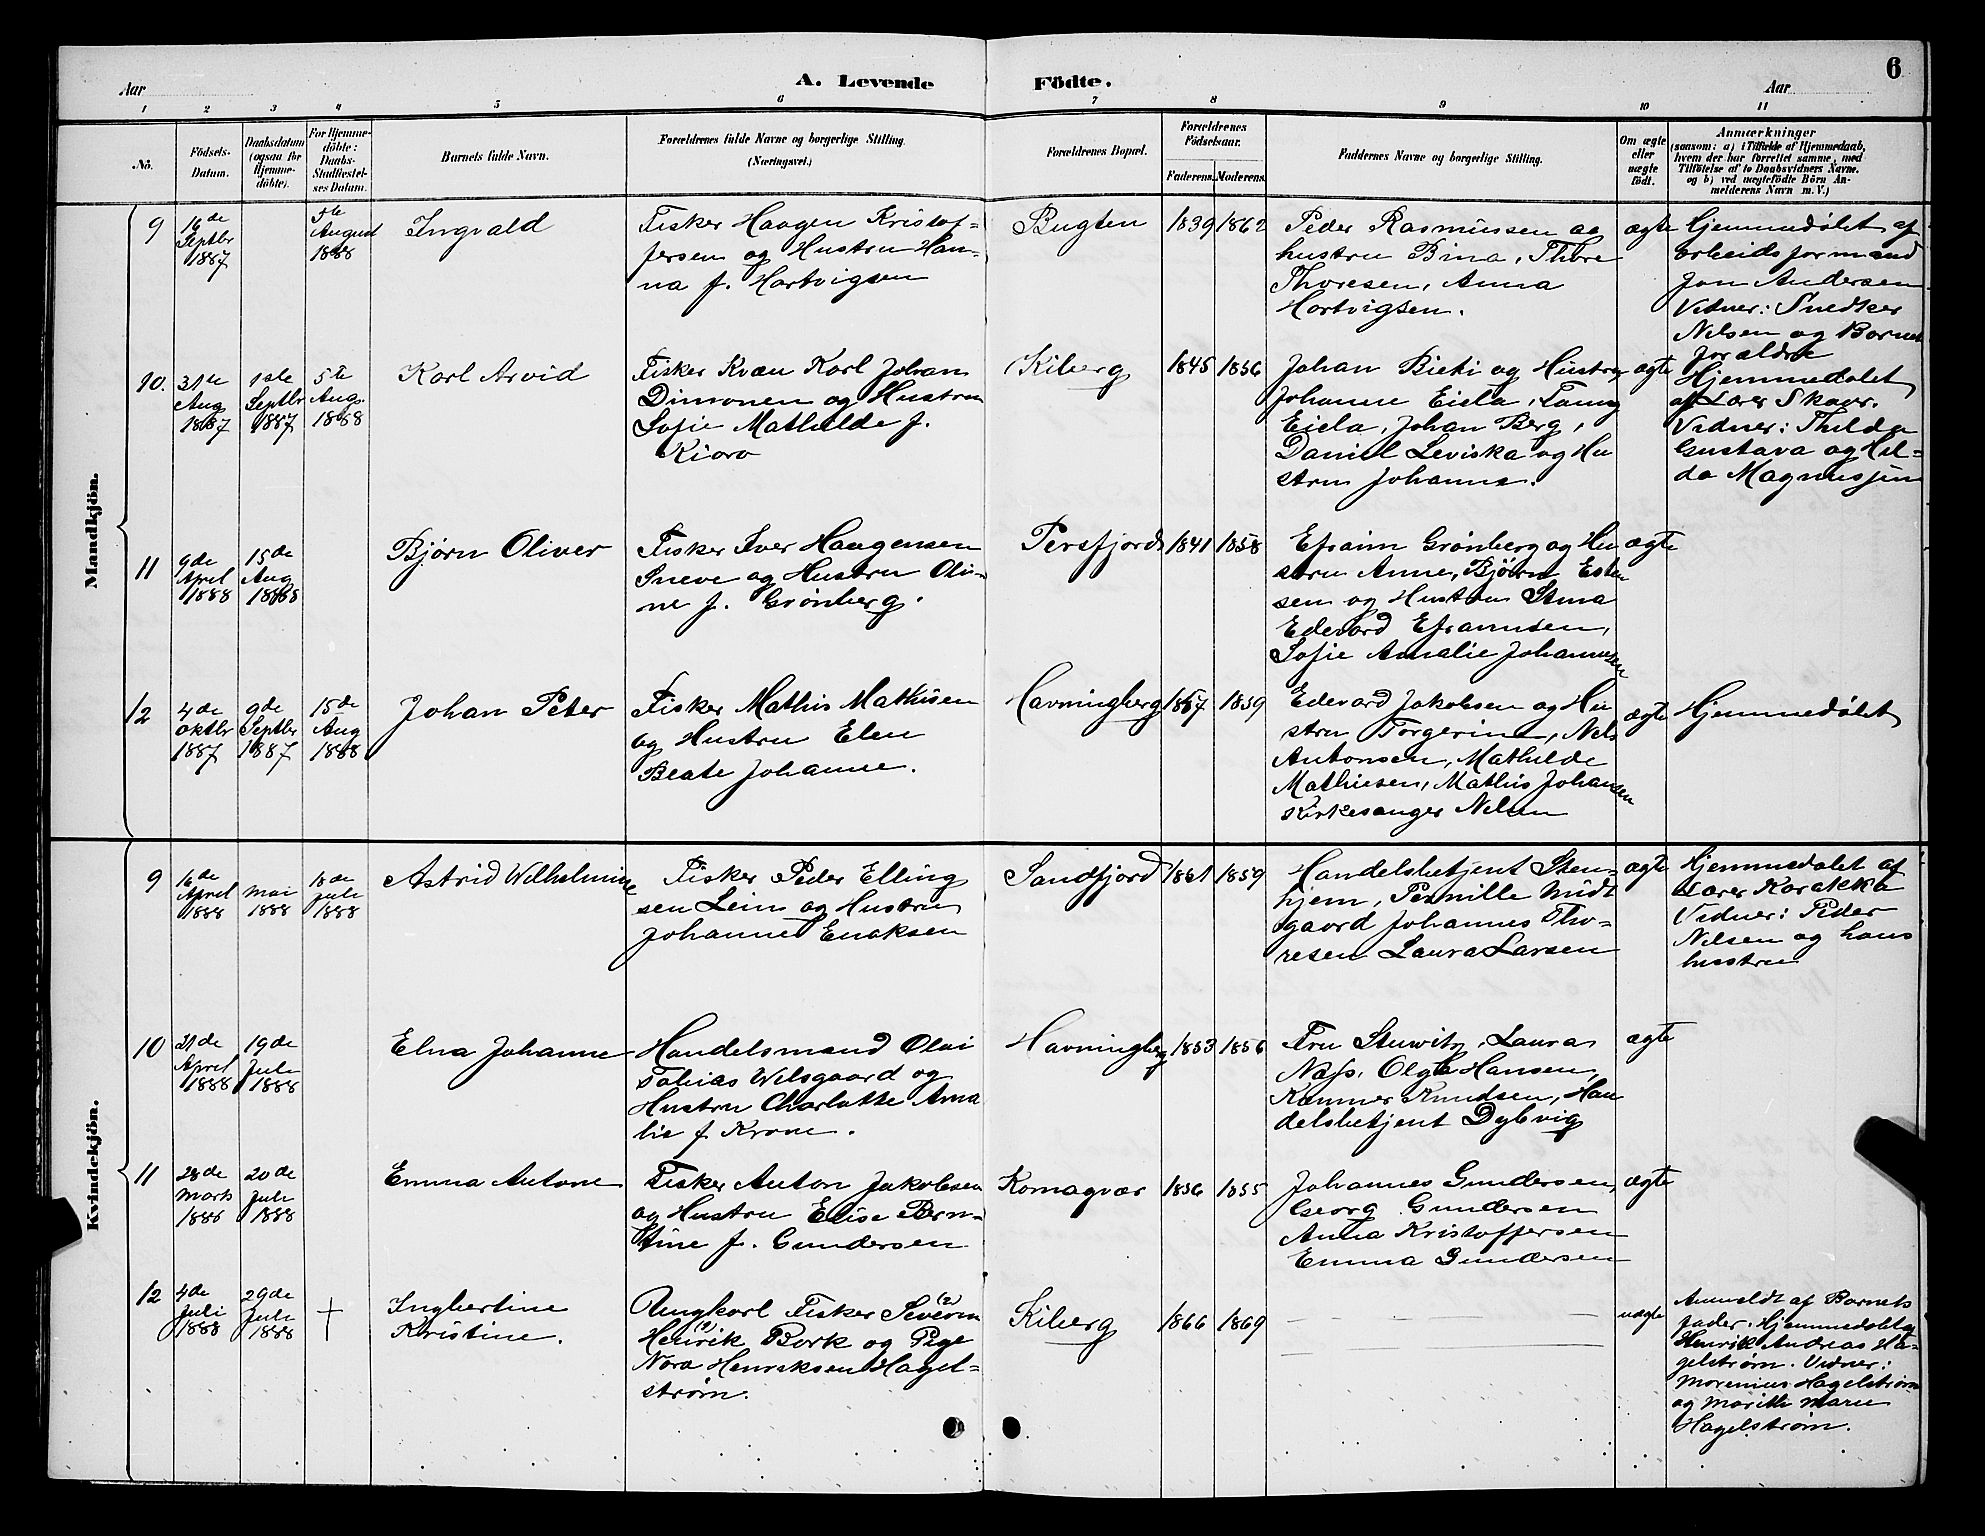 A. Levende Födte. 6
Aar Aar
1 2 3 4 5 6 7 8 9 10 11
No.
Födsels-
Datum.
Daabsdatum
(ogsaa for
Hjemme-
döbte).
For Hjemme-
döbte:
Daabs-
Stadfæstel-
ses Datum.
Barnets fulde Navn.
Forældrenes fulde Navne og borgerlige Stilling.
(Næringsvei.)
Forældrenes Bopæl.
Forældrenes
Födselsaar.
Faderens. Moderens.
Faddernes Navne og borgerlige Stilling.
Om ægte
eller
uægte
födt.
Anmærkninger
(saasom: a) i Tilfælde af Hjemmedaab,
hvem der har forrettet samme, med
Tilföielse af to Daabsvidners Navne.
og b) ved uægtefödte Börn An-
melderens Navn m. V.)
Mandkjön.
9
16de
Septbr
1887
5te
August
1888
Ingvald
Fisker Haagen Kristof-
fersen og Hustru Han-
na f. Hartvigsen
Bugten
1839 1862
Peder Rasmussen og
hustru Bina, Thore
Thoresen, Anna
Hartvigsen.
ægte
Hjemmedøbt af
arbeidsformand
Jon Andersen
Vidner: Snedker
Nilsen og Barnets
forældre
10.
31te
Aug
1887
1ste
Septbr
1887
5te
Aug.
1888
Karl Arvid
Fisker Kvæn Karl Johan
Dimonen og Hustru
Sofie Mathilde f.
Kioro
Kiberg
1845 1856
Johan Bieti og Hustru
Johanne Eiela, Fanny
Eiela, Johan Berg,
Daniel Leviska og Hu
stru Johanne.
ægte
Hjemmedøbt
af Lærer Skaar.
Vidner: Thilda
Gustava og Hil-
da Magnussen
11
9de
April
1888
15de
Aug
1888
Bjørn Oliver
Fisker Iver Haagensen
Sneve og Hustru Oli-
ne f. Grønberg.
Persfjord
1841 1858
Efraim Grønberg og Hu
stru Anne, Bjørn Esten
sen og Hustru Stina
Edevard Efraimsen,
Sofie Amalie Johannesen
ægte
12
4de
oktbr
1887
9de
Septbr
1887
15de
Aug
1888
Johan Peter
Fisker Mathis Mathisen
og Hustru Elen
Beate Johanne.
Havningberg
1857 1859
Edevard Jakobsen og Hu
stru Torgerine, Nels
Antonsen, Mathilde
Mathiesen, Mathis Johansen
Kirkesanger Nilsen
ægte
Hjemmedøbt
Kvindekjön.
9
16de
April
1888
Mai
1888
18de
Juli
1888
Astrid Wilhelmine
Fisker Peder Elling
sen Lein og Hustru
Johanne Enoksen
Sandfjord
1861 1859
Handelsbetjent Sten-
hjem, Pernille Midt
gaard Johannes Tho-
resen Laura Larsen
ægte
Hjemmedøbt af
Lærer Karakka
Vidner: Peder
Nilsen og hans
hustru
10
21de
April
1888
19de
Juli
1888
Elna Johanne
Handelsmand Olai
Tobias Wilsgaard og
Hustru Charlotte Ama
lie f Krane.
Havningberg
1853 1856
Fru Stuwitz, Laura
Næss, Olga Hansen,
Kanner Knudsen, Han
delsbetjent Dybvig
ægte
11
28de
Marts
1888
20de
Juli
1888
Emma Antone
Fisker Anton Jakobsen
og Hustru Elise Bern-
tine f. Gundersen
Komagvær
1856 1855
Johannes Gundersen,
Georg Gundersen
Anna Kristoffersen
Emma Gundersen
ægte
12
4de
Juli
1888
29de
Juli
1888
†
Ingbertine
Kristine.
Ungkarl Fisker Severin (2)
Henrik (1) Bork og Pige
Nora Henriksen Hagel-
strøm.
Kiberg
1866 1869
uægte
Anmeldt af Barnets
fader. Hjemmedøbt af
Henrik Andreas Ha-
gelstrøm. Vidner:
Morenius Hagelstrøm
og Marith Marie
Hagelstrøm.